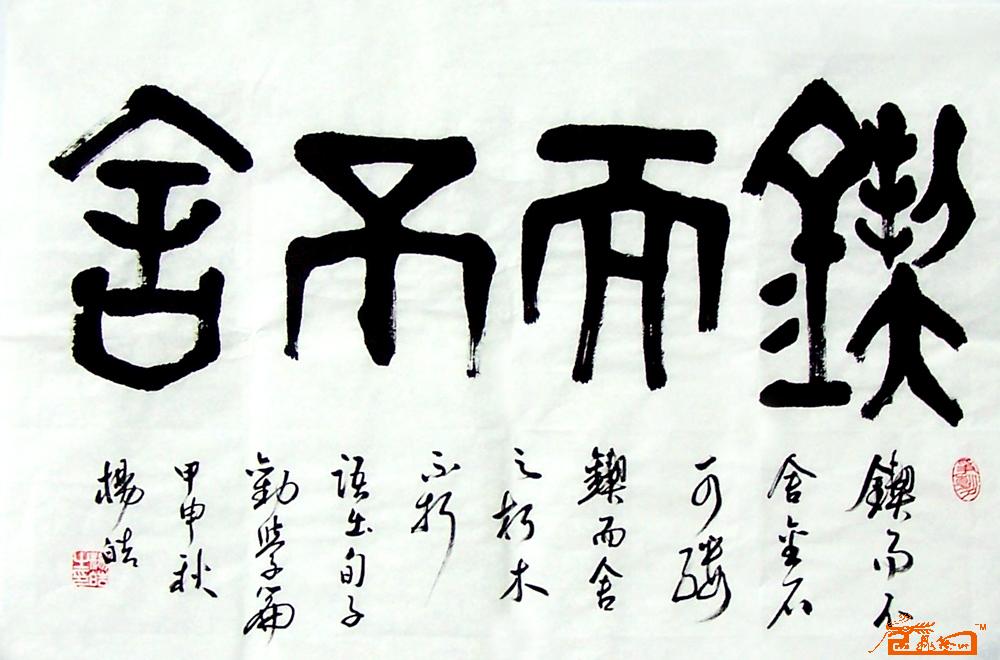 鍥而不舍
鍥而不
舍金石
可鏤
鍥而舍
之朽木
不折
語出旬子
勸學篇
甲申秋
楊皓